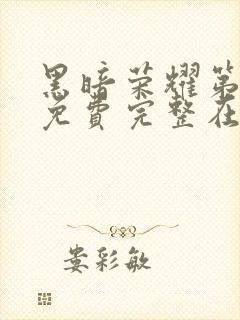 黑暗荣耀第
免费完整在
娄彩敏